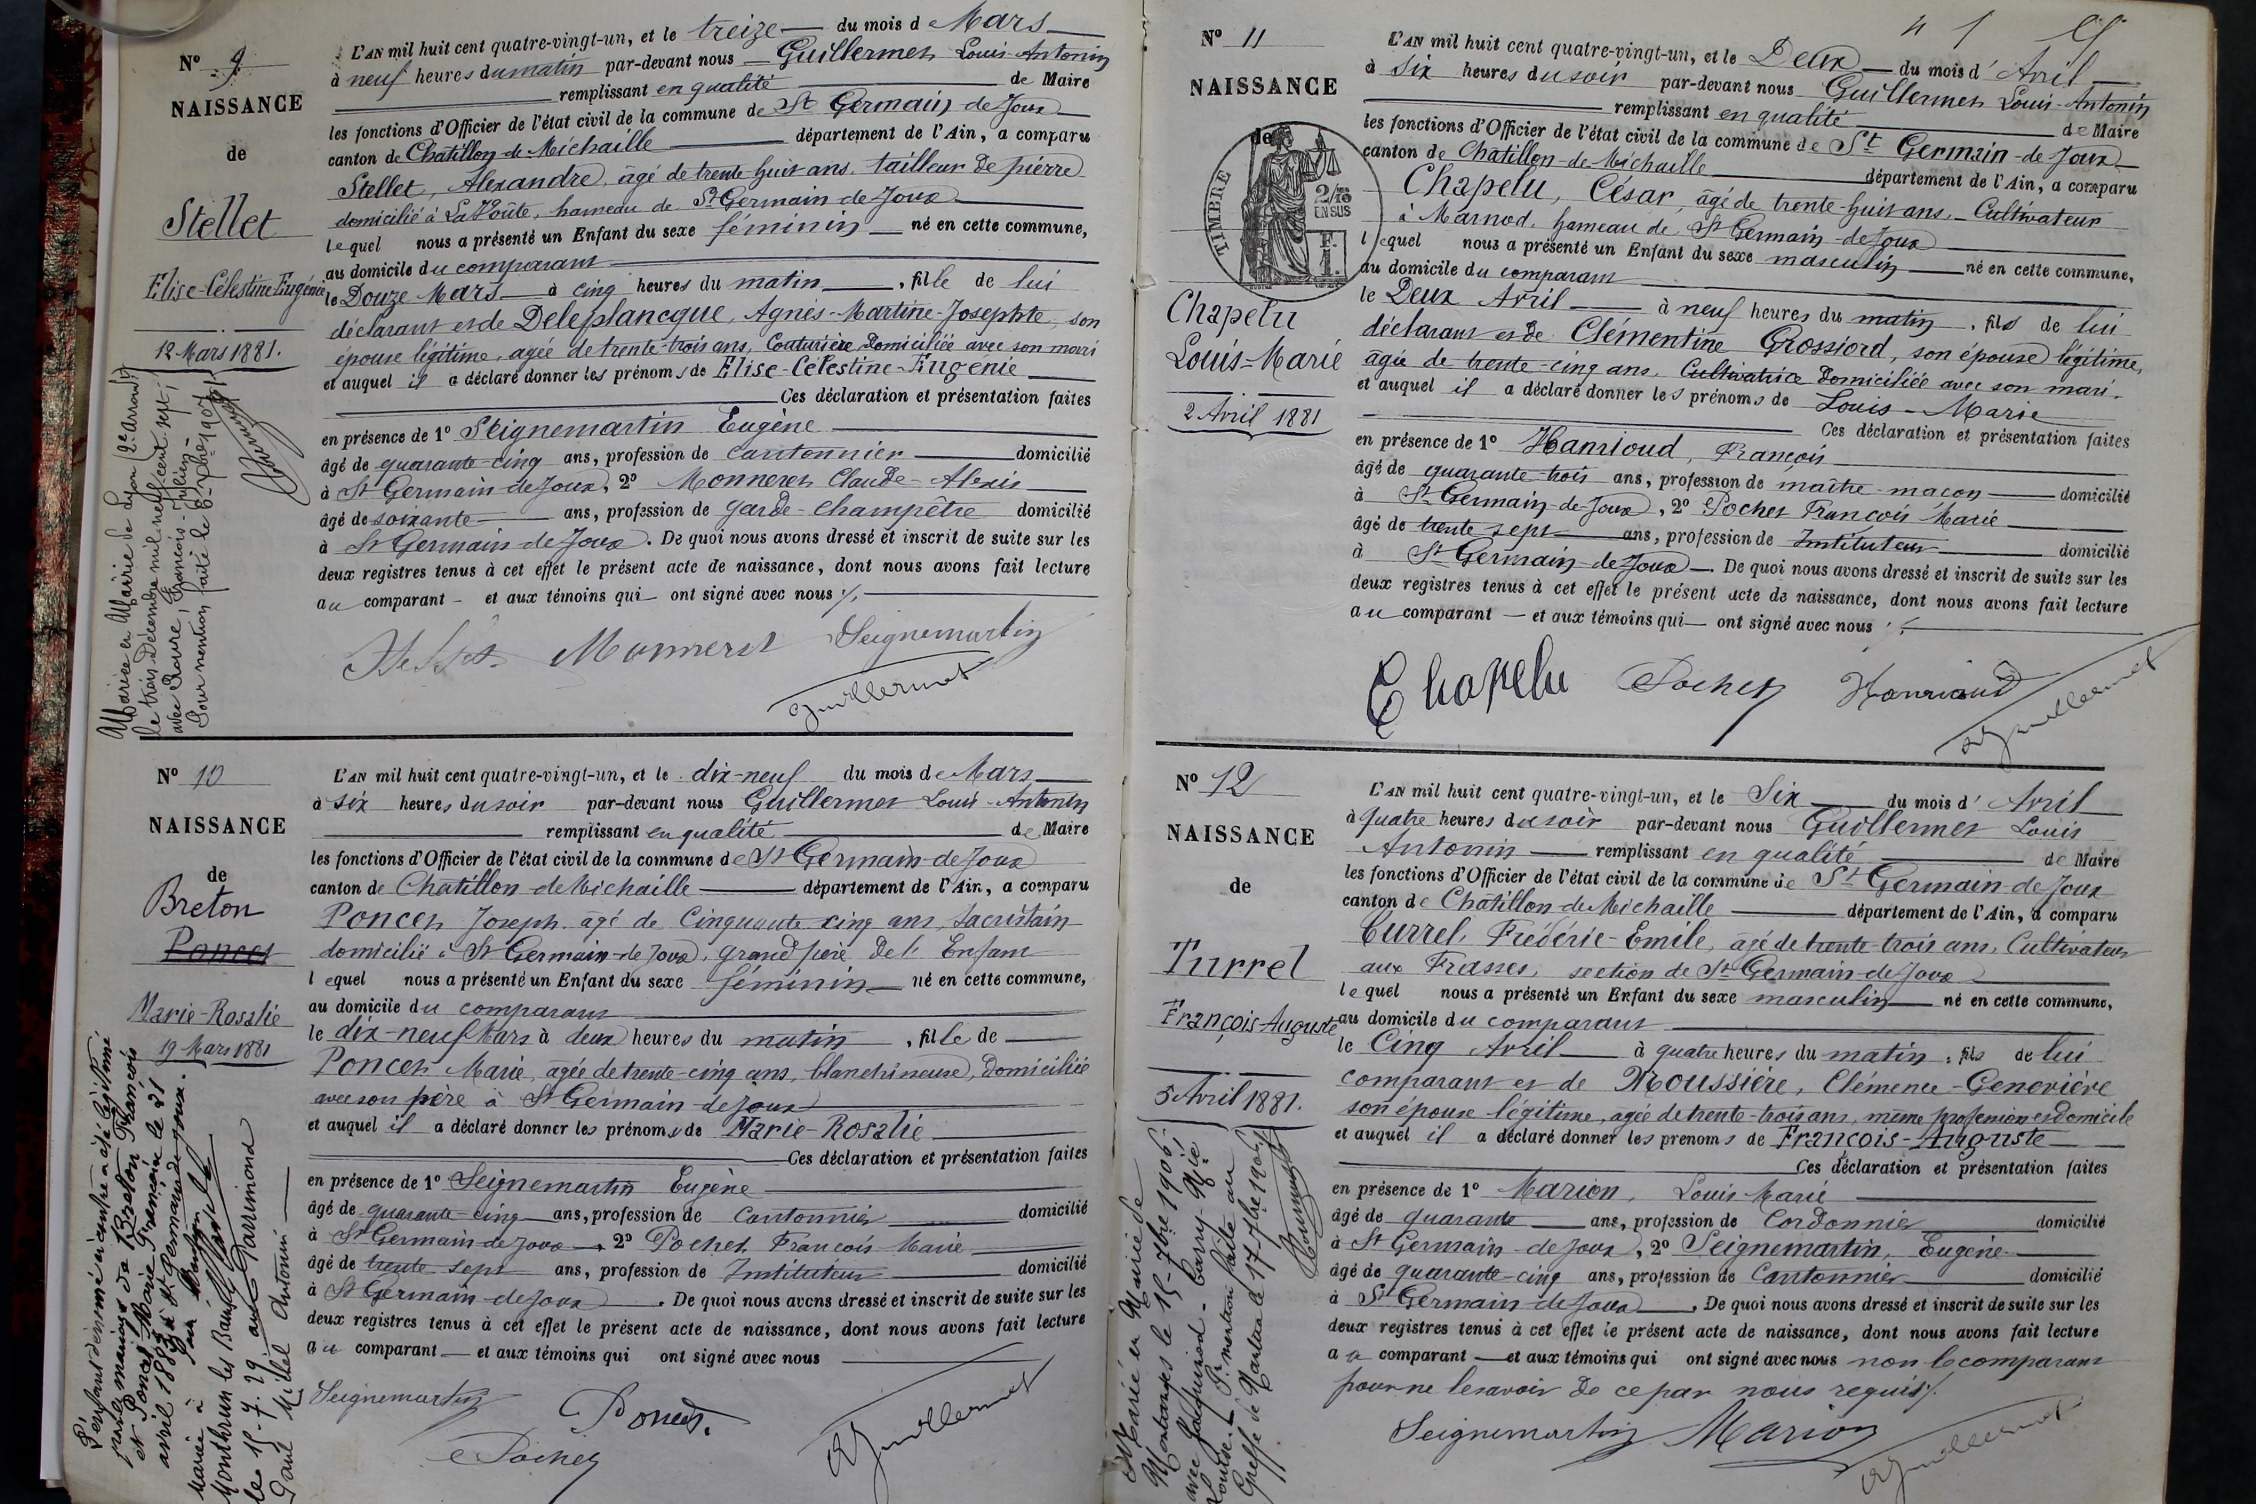 Nº 9
NAISSANCE
de
Stellet
Elise-Célestine-Eugénie
12 Mars 1881.
Mariée en Mairie de Lyon (2e arrondt)
le trois Décembre mil neuf cent sept,
avec
Pour mention faite le 6-Xbre-1907
L'AN mil huit cent quatre-vingt-un, et le treize du mois d Mars
à neuf heures du matin par-devant nous Guillermet Louis-Antonin
remplissant en qualité de Maire
les fonctions d'Officier de l'état civil de la commune de St Germain-de-Joux
canton de Châtillon-de-Michaille département de l'Ain, a comparu
Stellet, Alexandre, âgé de trente-huit ans, tailleur de pierre
domicilié à La Voûte, hameau de St Germain-de-Joux
lequel nous a présenté un Enfant du sexe féminin né en cette commune,
au domicile du comparant
le Douze Mars à cinq heures du matin, fille de lui
déclarant et de Deleplancque, Agnès-Martine-Josephte, son
épouse légitime, agée de trente-trois ans, Couturière, Domiciliée avec son mari
et auquel il a déclaré donner les prénoms de Elise-Célestine-Eugénie
Ces déclaration et présentation faites
en présence de 1º Seignemartin Eugène
âgé de quarante-cinq ans, profession de Cantonnier domicilié
à St Germain-de-Joux, 2º Monneret Claude-Alexis
âgé de soixante ans, profession de garde-champêtre domicilié
à St Germain-de-Joux. De quoi nous avons dressé et inscrit de suite sur les
deux registres tenus à cet effet le présent acte de naissance, dont nous avons fait lecture
au comparant et aux témoins qui ont signé avec nous
Stellet Monneret Seignemartin
Guillermet
Nº 10
NAISSANCE
de
Breton
Poncet
Marie-Rosalie
19 Mars 1881
L'enfant dénommé ci-contre a été légitimé
par le mariage de Breton François
et Poncet Marie Françoise le 21
avril 1883 à St Germain-de-Joux.
Mariée à
Monthrun les Bains
le 15-7-29 avec Garrimond
Paul Michel Antonin
L'AN mil huit cent quatre-vingt-un, et le dix-neuf du mois de Mars
à six heures du soir par-devant nous Guillermet Louis-Antonin
remplissant en qualité de Maire
les fonctions d'Officier de l'état civil de la commune de St Germain-de-Joux
canton de Chatillon-de-Michaille département de l'Ain, a comparu
Poncet Joseph, âgé de Cinquante-cinq ans, Sacristain
domicilié à St Germain-de-Joux, grand père de l'Enfant
lequel nous a présenté un Enfant du sexe féminin né en cette commune,
au domicile du comparant
le dix-neuf Mars à deux heures du matin, fille de
Poncet Marie, agée de trente-cinq ans, blanchisseuse, domiciliée
avec son père à St Germain-de-Joux
et auquel il a déclaré donner les prénoms de Marie-Rosalie
Ces déclaration et présentation faites
en présence de 1º Seignemartin Eugène
âgé de quarante-cinq ans, profession de Cantonnier domicilié
à St Germain-de-Joux, 2º Pochet François Marie
âgé de trente-sept ans, profession de Instituteur domicilié
à St Germain-de-Joux. De quoi nous avons dressé et inscrit de suite sur les
deux registres tenus à cet effet le présent acte de naissance, dont nous avons fait lecture
au comparant et aux témoins qui ont signé avec nous
Seignemartin Poncet
Pochet Guillermet
Nº 11
NAISSANCE
de
TIMBRE
2/10
EN SUS
F.
1.
Chapelu
Louis-Marie
2 Avril 1881
L'AN mil huit cent quatre-vingt-un, et le Deux du mois d'Avril
à six heures du soir par-devant nous Guillermet Louis-Antonin
remplissant en qualité de Maire
les fonctions d'Officier de l'état civil de la commune de St Germain-de-Joux
canton de Châtillon-de-Michaille département de l'Ain, a comparu
Chapelu, César, âgé de trente-huit ans, Cultivateur
à Marnod, hameau de St Germain-de-Joux
lequel nous a présenté un Enfant du sexe masculin né en cette commune,
au domicile du comparant
le Deux Avril à neuf heures du matin, fils de lui
déclarant et de Clémentine Grossiord, son épouse légitime,
agée de trente-cinq ans, Cultivatrice Domiciliée avec son mari.
et auquel il a déclaré donner les prénoms de Louis-Marie
Ces déclaration et présentation faites
en présence de 1º Hanrioud, François
âgé de quarante-trois ans, profession de maître-maçon domicilié
à St Germain-de-Joux, 2º Pochet François Marie
âgé de trente sept ans, profession de Instituteur domicilié
à St Germain-de-Joux. De quoi nous avons dressé et inscrit de suite sur les
deux registres tenus à cet effet le présent acte de naissance, dont nous avons fait lecture
au comparant et aux témoins qui ont signé avec nous
Chapelu Pochet Hanrioud
Guillermet
Nº 12
NAISSANCE
de
Turrel
François-Auguste
5 Avril 1881.
Marié en Mairie de
Montanges le 15-7bre 1906.
avec Jacquinod-Carry-Mie
Louise. Pr mention faite au
Greffe de Nantua le 17-7bre 1906
L'AN mil huit cent quatre-vingt-un, et le Six du mois d'Avril
à quatre heures du soir par-devant nous Guillermet Louis
Antonin remplissant en qualité de Maire
les fonctions d'Officier de l'état civil de la commune de St Germain-de-Joux
canton de Chatillon-de-Michaille département de l'Ain, a comparu
Turrel, Frédéric-Emile, âgé de trente-trois ans, Cultivateur
aux Frasses, section de St Germain-de-Joux
lequel nous a présenté un Enfant du sexe masculin né en cette commune,
au domicile du comparant
le Cinq Avril à quatre heures du matin, fils de lui
comparant et de Moussière, Clémence-Geneviève
son épouse légitime, agée de trente-trois ans, même profession et domicile
et auquel il a déclaré donner les prénoms de François-Auguste
Ces déclaration et présentation faites
en présence de 1º Marion, Louis Marie
âgé de quarante ans, profession de Cordonnier domicilié
à St Germain-de-Joux, 2º Seignemartin, Eugène
âgé de quarante-cinq ans, profession de Cantonnier domicilié
à St Germain-de-Joux. De quoi nous avons dressé et inscrit de suite sur les
deux registres tenus à cet effet le présent acte de naissance, dont nous avons fait lecture
au comparant et aux témoins qui ont signé avec nous non le comparant
pour ne le savoir de ce par nous requis
Seignemartin Marion
Guillermet